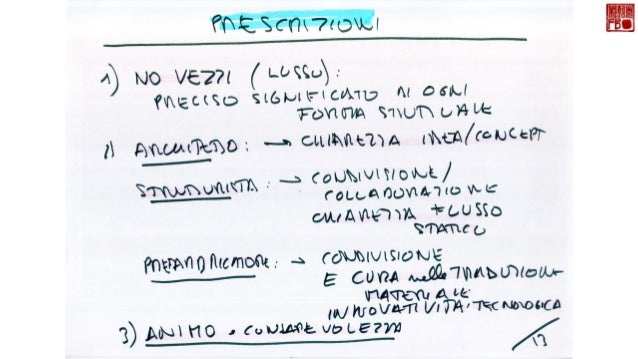 PRESCRIZIONI
1) NO VEZZI (LUSSO):
PRECISO SIGNIFICATO DI OGNI
FORMA STRUTTURALE
2) ARCHITETTO: → CHIAREZZA IDEA/CONCEPT
STRUTTURISTA: → CONDIVISIONE/
COLLABORAZIONE
CHIAREZZA FLUSSO
STATICO
PREFABBRICATORE: → CONDIVISIONE
E CURA nella TRADUZIONE
MATERIALE
INNOVATIVITÀ TECNOLOGICA
3) ANIMO e CONSAPEVOLEZZA
13